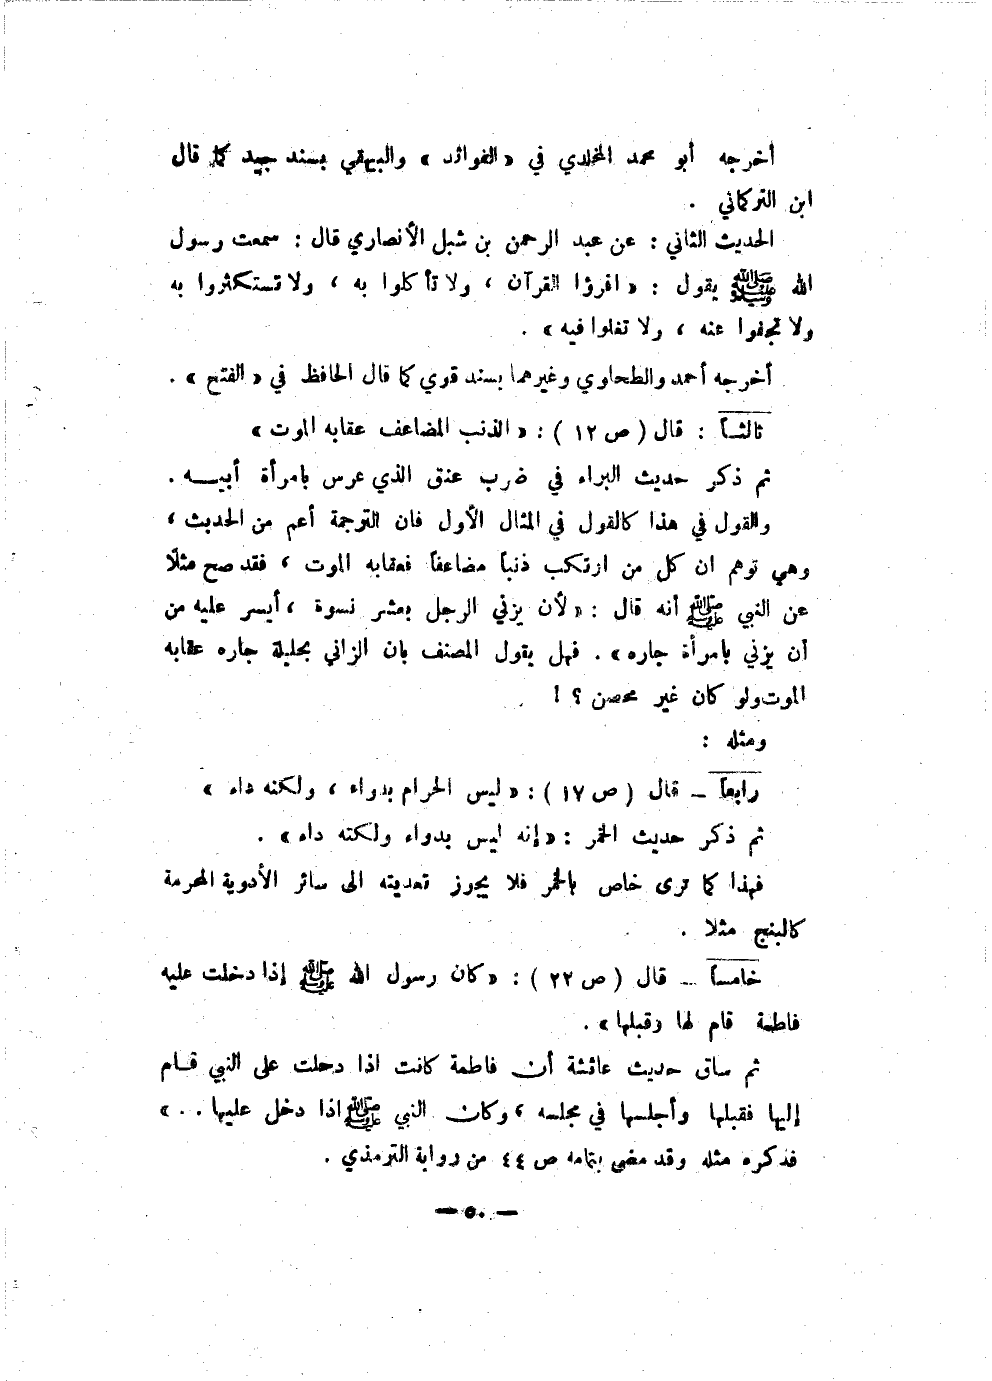 أخرجه أبو محمد المخلدي في « الفوائد » والبيهقي بسند جيد كما قال
ابن التركماني .
الحديث الثاني : عن عبد الرحمن بن شبل الأنصاري قال : سمعت رسول
الله ﷺ يقول : « اقرؤا القرآن ، ولا تأكلوا به ، ولا تستكثروا به
ولا تجفوا عنه ، ولا تغلوا فيه » .
أخرجه أحمد والطحاوي وغيرهما بسند قوي كما قال الحافظ في « الفتح » .
ثالثـاً : قال ( ص ١٢ ) : « الذنب المضاعف عقابه الموت »
ثم ذكر حديث البراء في ضرب عنق الذي عرس بامرأة أبيـــه .
والقول في هذا كالقول في المثال الأول فان الترجمة أعم من الحديث ،
وهي توهم ان كل من ارتكب ذنباً مضاعفاً فعقابه الموت ، فقد صح مثلًا
عن النبي ﷺ أنه قال : « لأن يزني الرجل بعشر نسوة ، أيسر عليه من
أن يزني بامرأة جاره » . فهل يقول المصنف بان الزاني بحليلة جاره عقابه
الموت ولو كان غير محصن ؟ !
ومثله :
رابعاً – قال ( ص ١٧ ) : « ليس الحرام بدواء ، ولكنه داء »
ثم ذكر حديث الخمر : « إنه ليس بدواء ولكنه داء » .
فهذا كما ترى خاص بالخمر فلا يجوز تعديته الى سائر الأدوية المحرمة
كالبنج مثلا .
خامساً – قال ( ص ٢٢ ) : « كان رسول الله ﷺ إذا دخلت عليه
فاطمة قام لها وقبلها » .
ثم ساق حديث عائشة أن فاطمة كانت اذا دخلت على النبي قـام
إليها فقبلها وأجلسها في مجلسه ، وكان النبي ﷺ اذا دخل عليها . . »
فذكره مثله وقد مضى بتمامه ص ٤٤ من رواية الترمذي .
— ٥٠ —